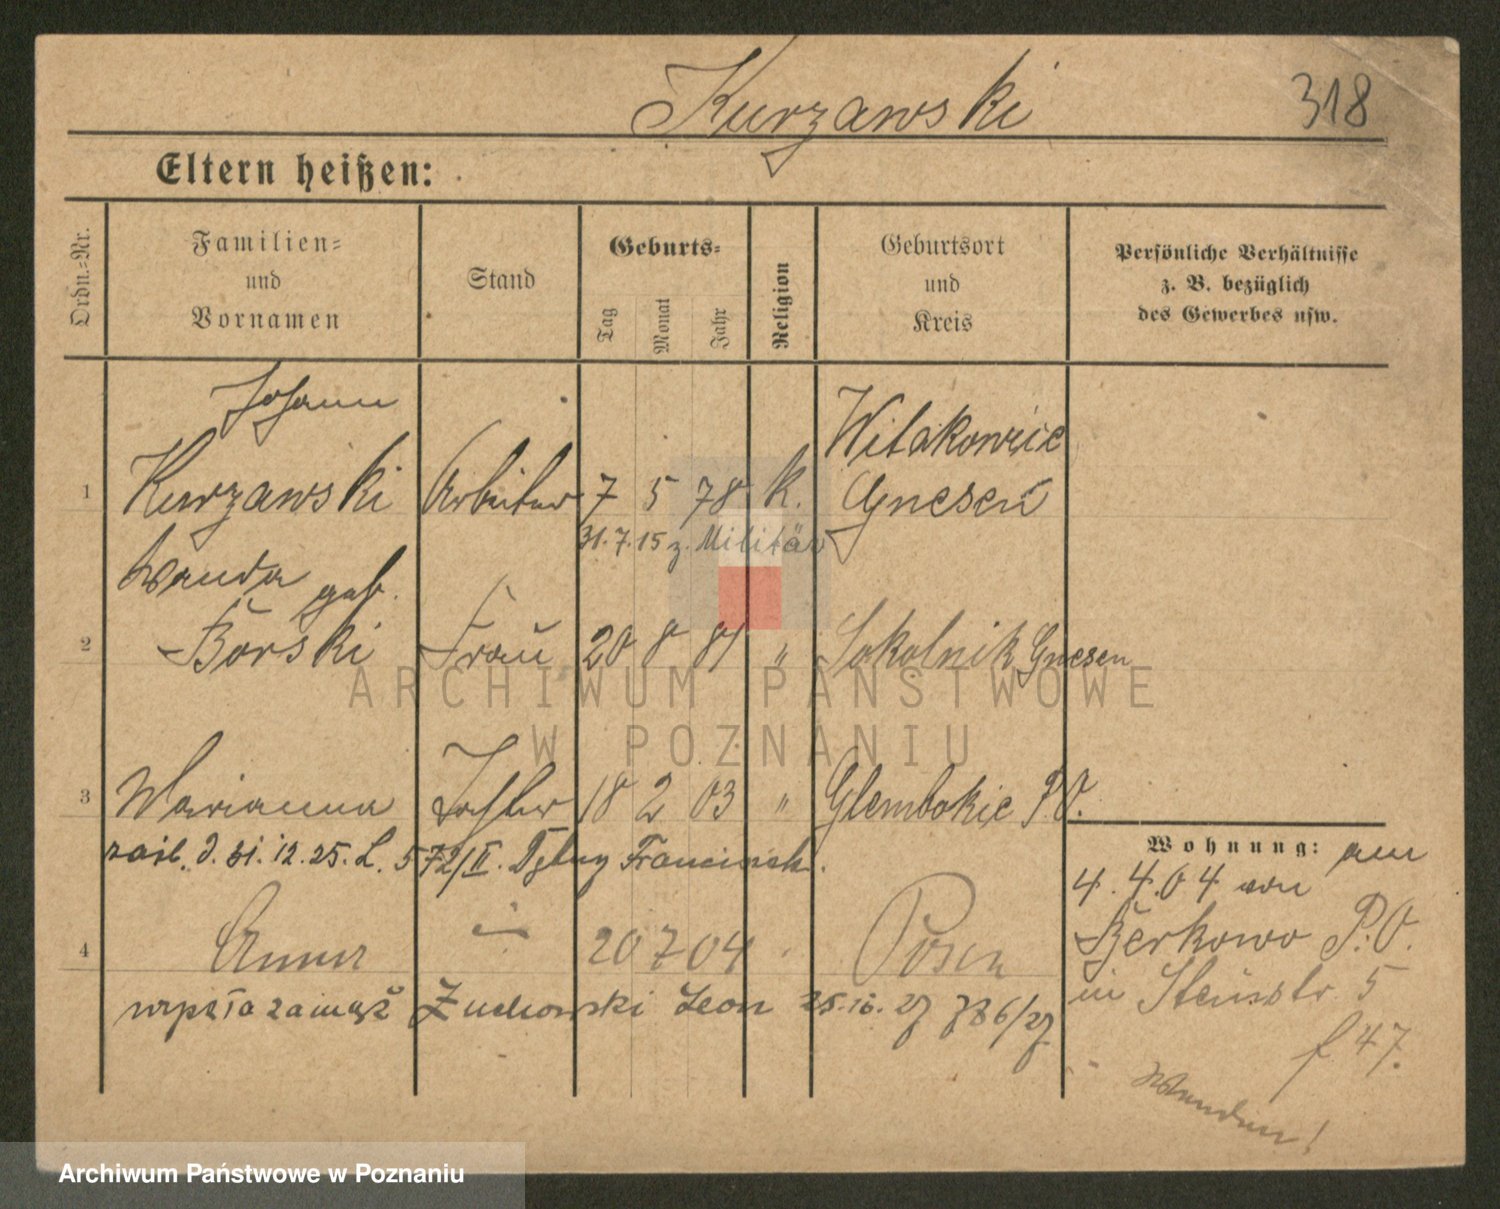 Kurzawski
318
Eltern heißen:
Ordn.=Nr.
Familien=
und
Vornamen
Stand
Geburts=
Tag
Monat
Jahr
Religion
Geburtsort
und
Kreis
Persönliche Verhältnisse
z. B. bezüglich
des Gewerbes usw.
Johann
1 Kurzawski Arbeiter 7 5 78 k. Witakowice
Gnesen
31.7.15 z. Militär
Wanda geb.
2 Borski Frau 20 8 81 " Sokolnik Gnesen
ARCHIWUM PAŃSTWOWE
W POZNANIU
3 Marianna Tochter 18 2 03 " Glembokie P.O.
d. 31.12.25. L. 572/II. Franciszek.
4 Anna 20 7 04 Posen
wyszła zamąż Żuchowski Leon 25.10.27 786/27
Wohnung: am
4.4.04 von
Berkowo P.O.
in 5
f 47.
Wenden!
Archiwum Państwowe w Poznaniu